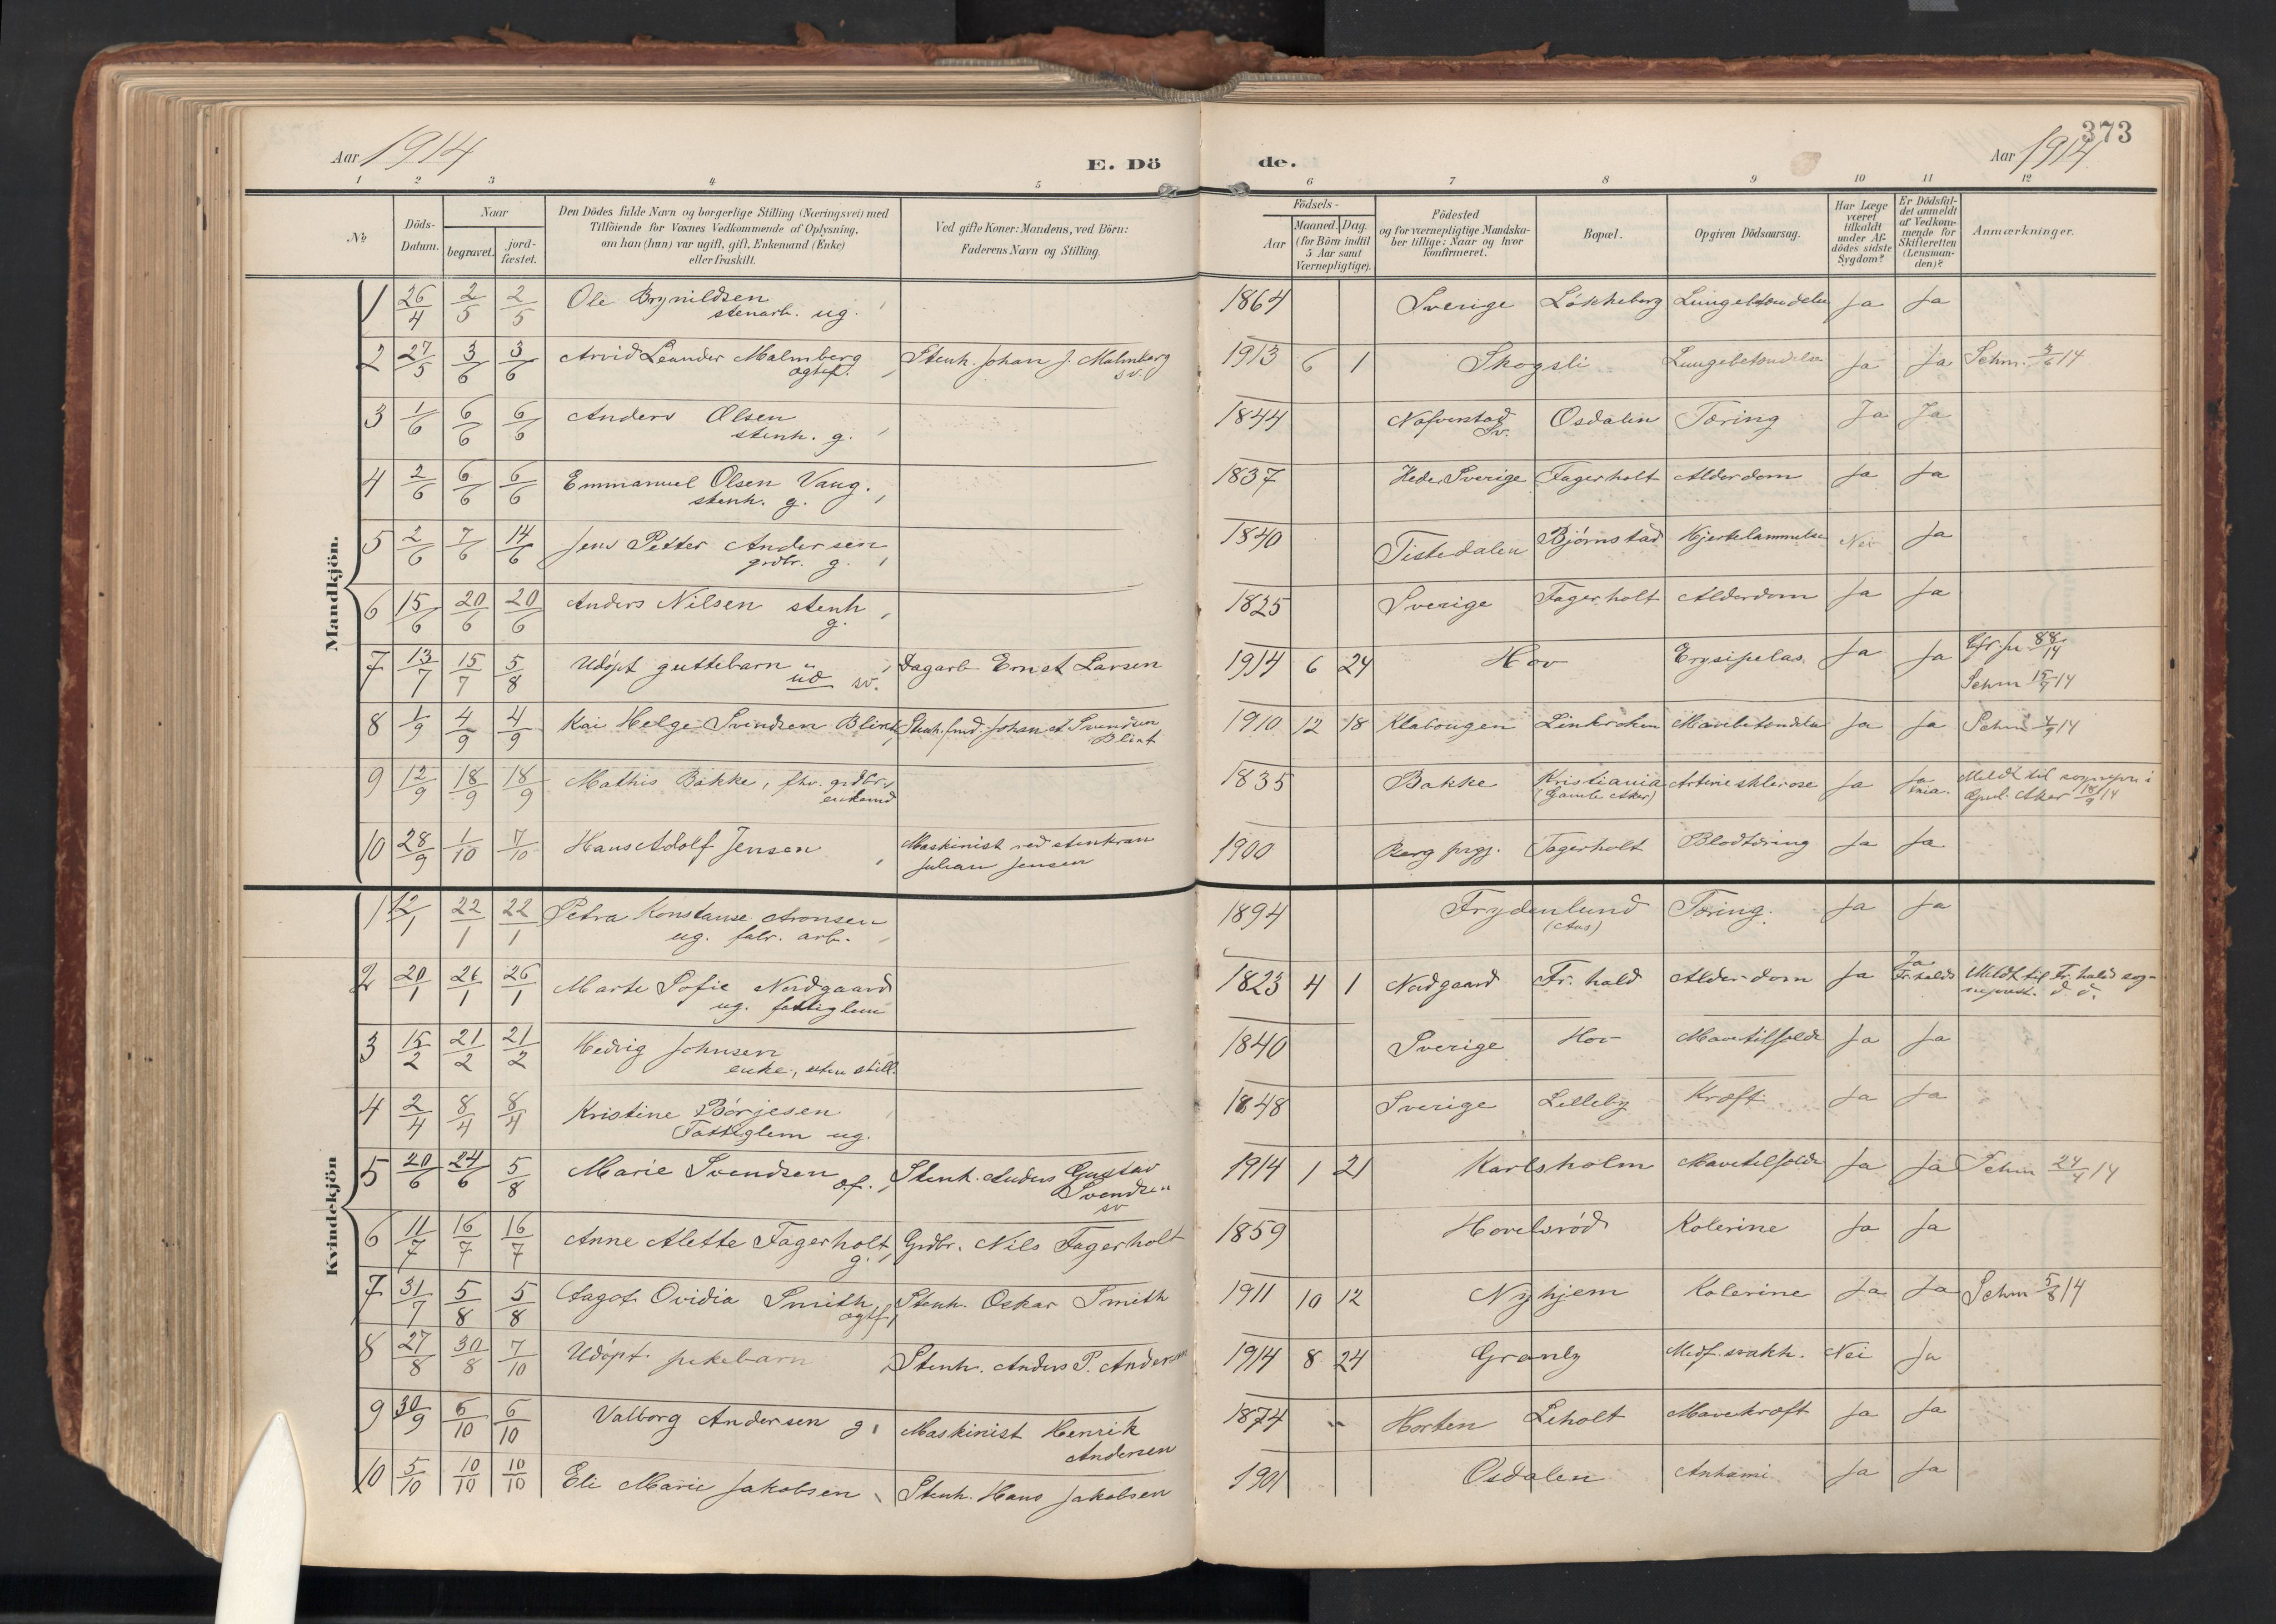 373
Aar 1914
E. Dö
de.
Aar 1914
1 2 3 4 5 6 7 8 9 10 11 12
№
Döds-Datum.
Naar
begravet.
jord-fæstet.
Den Dödes fulde Navn og borgerlige Stilling (Næringsvei) med
Tilföiende for Voxnes Vedkommende af Oplysning,
om han (hun) var ugift, gift, Enkemand (Enke)
eller fraskilt.
Ved gifte Koner: Mandens, ved Börn:
Faderens Navn og Stilling.
Födsels-
Aar
Maaned. Dag.
(for Börn indtil
5 Aar samt
Værnepligtige).
Födested
og for værnepligtige Mandska-
ber tillige: Naar og hvor
konfirmeret.
Bopæl.
Opgiven Dödsaarsag.
Har Læge
været
tilkaldt
under Af-
dödes sidste
Sygdom?
Er Dödsfal-
det anmeldt
af Vedkom-
mende for
Skifteretten
(Lensman-
den)?
Anmærkninger.
Mandkjön.
1 26/4 2/5 2/5 Ole Brynildsen 1864 Sverige Løkkeberg Lungebetændelse Ja Ja
stenarb. ug.
2 27/5 3/6 3/6 Arvid Leander Malmberg Stenh. Johan J. Malmberg 1913 6 1 Skogsli Lungebetændelse Ja Ja Schm. 3/6 14
ægtef. sv.
3 1/6 6/6 6/6 Anders Olsen 1844 Nafverstad Osdalen Tæring Ja Ja
stenh. g. Sv.
4 2/6 6/6 6/6 Emmanuel Olsen Vaug. 1837 Hede Sverige Fagerholt Alderdom Ja Ja
stenh. g.
5 2/6 7/6 14/6 Jens Petter Andersen 1840 Tistedalen Bjørnstad Hjertelammelse Nei Ja
grdbr. g.
6 15/6 20/6 20/6 Anders Nilsen stenh 1825 Sverige Fagerholt Alderdom Ja Ja
g.
7 13/7 15/7 5/8 Udøpt guttebarn Dagarb Ernst Larsen 1914 6 24 Hov Erysipelas Ja Ja 88/14
sv. Schm 15/7 14
8 1/9 4/9 4/9 Kai Helge Svendsen Blink Johan A. Svendsen 1910 12 18 Linkroken Mavebetændelse Ja Ja Schm 4/9 14
9 12/9 18/9 18/9 Mathis Bakke, fhv. grdbr. 1835 Bakke Kristiania Arteriesklerose Ja Ja Meldt til sognepr. i
enkemd (Gamle Aker) Aker 18/9 14
10 28/9 1/10 7/10 Hans Adolf Jensen Maskinist ved stenkran 1900 Berg prgj. Fagerholt Blodtæring Ja Ja
Julian Jensen
Kvindekjön
1 12/1 22/1 22/1 Petra Konstanse Aronsen 1894 Frydenlund Tæring. Ja Ja
ug. fabr. arb. (Aas)
2 20/1 26/1 26/1 Marte Sofie Nordgaard 1823 4 1 Nordgaard Fr. hald Alderdom Ja Ja Fr. hald Meldt til Fr. hald sog-
ug. fattiglem neprest. d. d.
3 15/2 21/2 21/2 Hedvig Johnsen 1840 Sverige Hov Mavetilfælde Ja Ja
enke, uten still.
4 2/4 8/4 8/4 Kristine Børjesen 1848 Sverige Lilleby Kræft Ja Ja
Fattiglem ug.
5 20/6 24/6 5/8 Marie Svendsen Stenh. Anders Gustav 1914 1 21 Karlsholm Mavetilfælde Ja Ja Schm
Svendsen
sv
6 11/7 16/7 16/7 Anne Alette Fagerholt Grdbr. Nils Fagerholt 1859 Hovelsrød Kolerine Ja Ja
g.
7 31/7 5/8 5/8 Aagot Ovidia Smith Stenh. Oskar Smith 1911 10 12 Nyhjem Kolerine Ja Ja Schm 5/8 14
ægtf.
8 27/8 30/8 7/10 Udøpt pikebarn Stenh. Anders P. Andersen 1914 8 24 Granly Medf. svakh. Nei Ja
9 30/9 6/10 6/10 Valborg Andersen g. Maskinist Henrik 1874 Horten Leholt Mavekræft Ja Ja
Andersen
10 5/10 10/10 10/10 Eli Marie Jakobsen Stenh. Hans Jakobsen 1901 Osdalen Ja Ja